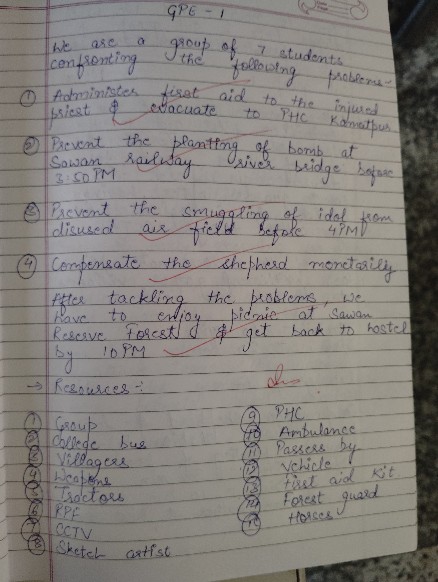 GPE - 1
We are a group of 7 students
confronting the following problems-
① Administer first aid to the injured
priest & evacuate to PHC Kamatpur
② Prevent the plantting of bomb at
Sawan railway river bridge before
3:50 PM
③ Prevent the smuggling of idol from
disused air field before 4PM
④ Compensate the shepherd monetarily
After tackling the problems, we
have to enjoy picnic at Sawan
Reserve Forest & get back to hostel
by 10 PM
→ Resources :-
① Group
② College bus
③ Villagers
④ Weapons
⑤ Tractors
⑥ RPF
⑦ CCTV
⑧ Sketch artist
⑨ PHC
⑩ Ambulance
⑪ Passers by
⑫ Vehicle
⑬ First aid Kit
⑭ Forest guard
⑮ Horses